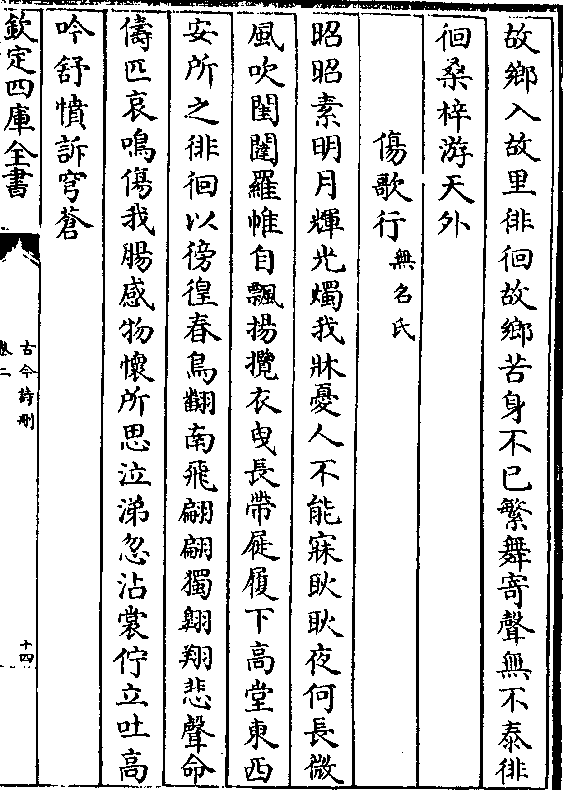 故鄉入故里徘徊故鄉苦身不已繁舞寄聲無不泰徘
徊桑梓游天外
傷歌行無名氏
昭昭素明月輝光燭我牀憂人不能寐耿耿夜何長微
風吹閨闥羅帷自飄揚攬衣曳長帶屣履下高堂東西
安所之徘徊以徬徨春鳥翻南飛翩翩獨翱翔悲聲命
儔匹哀鳴傷我腸感物懷所思泣涕忽沾裳佇立吐高
吟舒憤訴穹蒼
欽定四庫全書
古今詩刪
卷二
十四